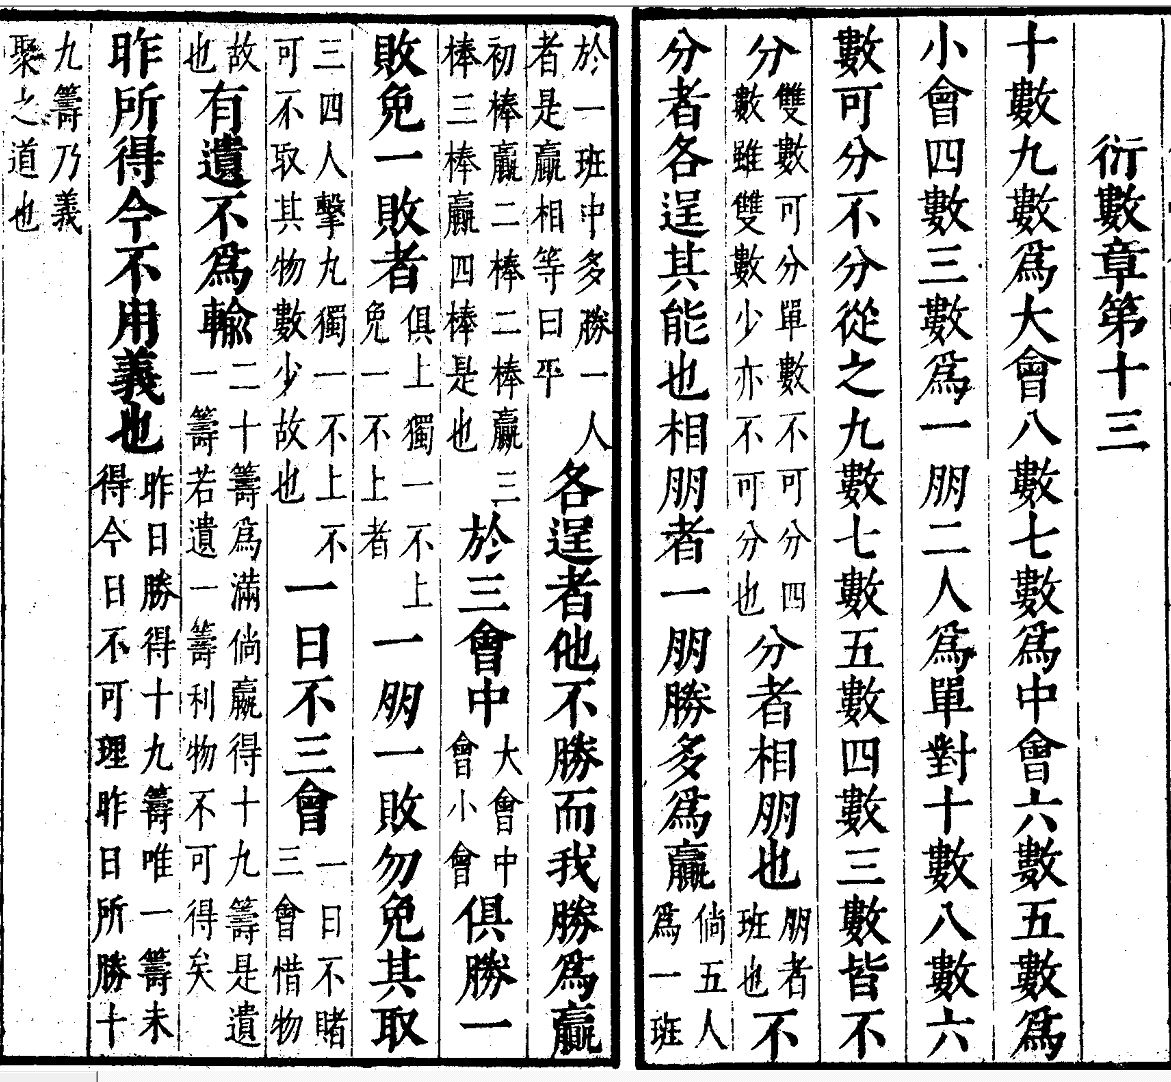 衍數章第十三
十數九數爲大會八數七數爲中會六數五數爲
小會四數三數爲一朋二人爲單對十數八數六
數可分不分從之九數七數五數四數三數皆不
分雙數可分單數不可分四數雖雙數少亦不可分也分者相朋也朋者班也不
分者各逞其能也相朋者一朋勝多爲贏倘五人爲一班
於一班中多勝一人者是贏相等曰平各逞者他不勝而我勝爲贏
初棒贏二棒二棒贏三棒三棒贏四棒是也於三會中大會中會小會俱勝一
敗免一敗者俱上獨一不上免一不上者一朋一敗勿免其取
三四人擊丸獨一不上不可不取其物數少故也一日不三會一日不賭三會惜物
故也有遺不爲輸二十籌爲滿倘贏得十九籌是遺一籌若遺一籌利物不可得矣
昨所得今不用義也昨日勝得十九籌唯一籌未得今日不可理昨日所勝十
九籌乃義聚之道也